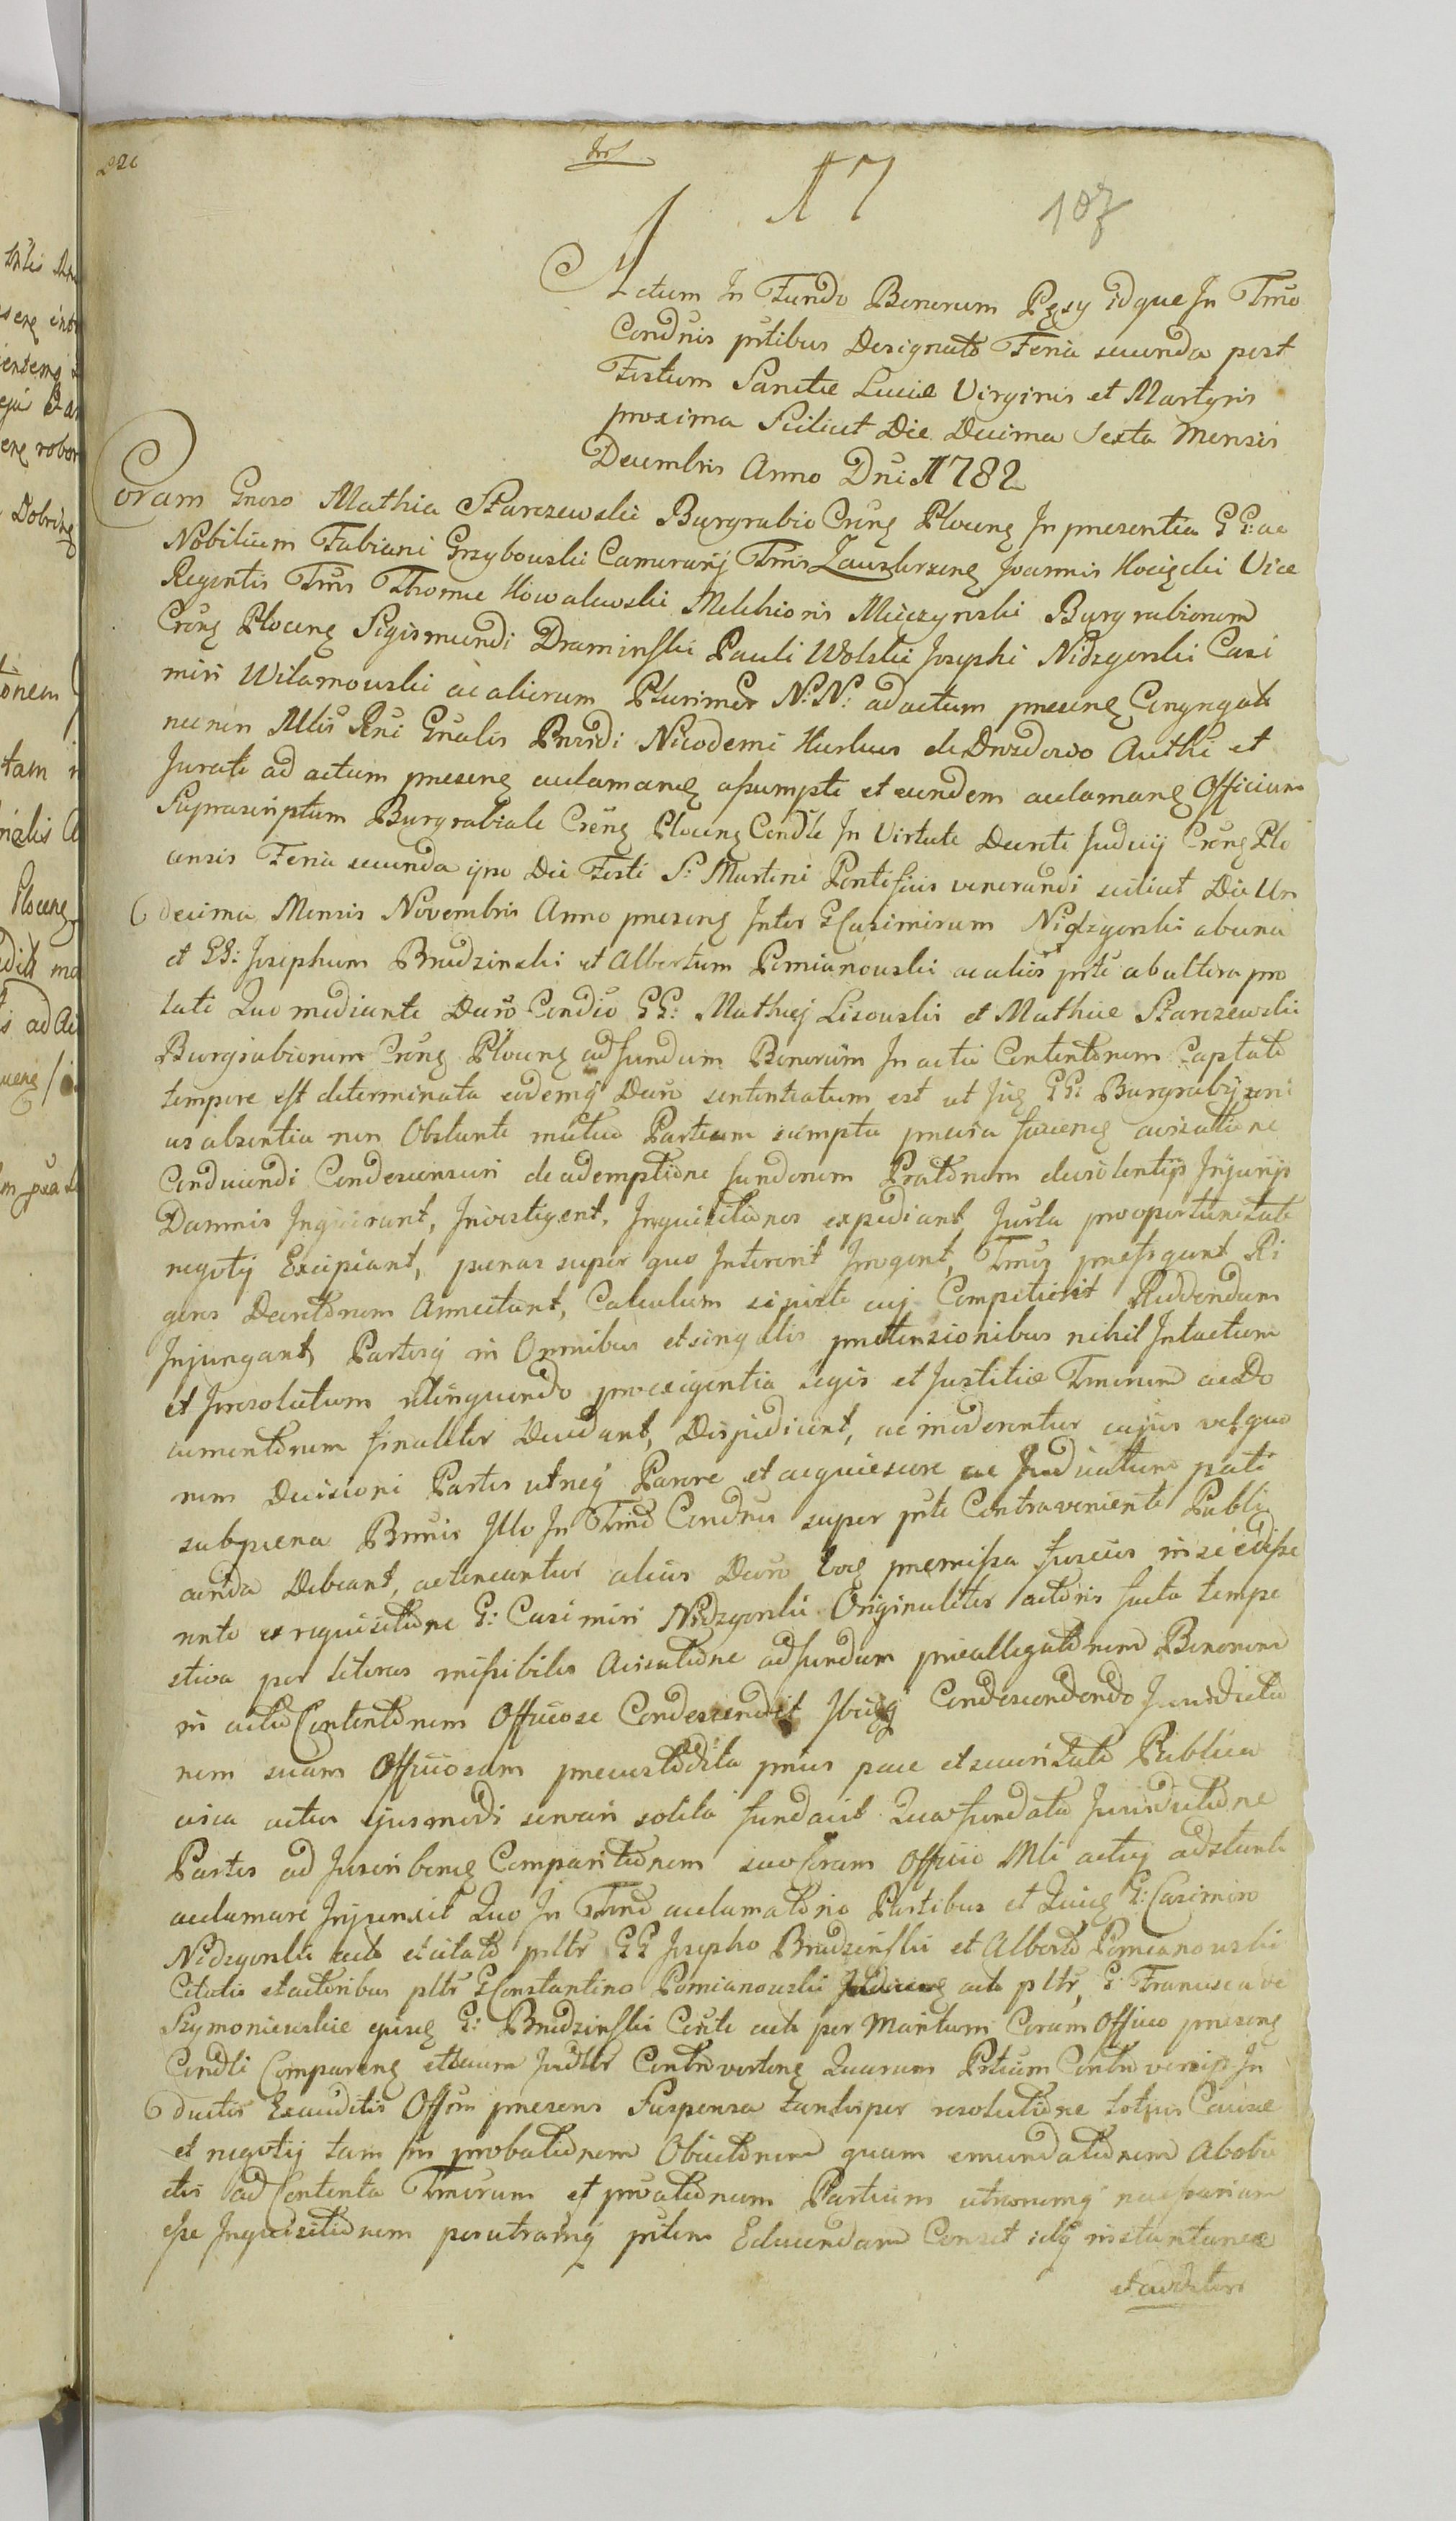 17
107
Actum In Fundo Bonorum Pęsy idque In Tmo
Condnis ptibus Designato Feria secunda post
Festum Sanctæ Luciæ Virginis et Martyris
proxima Scilicet Die Decima Sexta Mensis
Decembris Anno Dni 1782
Coram Gnoso Mathia Starczewski Burgrabio Crene Plocene In presentia GG: ac
Nobilium Fabiani Grzybowski Camerarij Tris Zauskrzene Joannis Kocięcki Vice
Regentis Tris Thomæ Kowalewski Melchioris Miączynski Burgrabiorum
Crene Plocene Sigismundi Draminski Pauli Wolski Josephi Nidzgorski Casi
miri Wilamowski ac aliorum Plurimor N: N: ad actum presene Congregat
necnon Mlis Rni Gnalis Provdi Nicodemi Kurkus de Drozdowo Authci et
Jurati ad actum presene acclamane assumpti et eundem acclamane Officium
Suprascriptum Burgrabiale Crene Plocene Condle In Virtute Decreti Judicij Crene Plo
censis Feria secunda ipso Die Festi S: Martini Pontificis venerandi scilicet Die Un
decima Mensis Novembris Anno presene Inter G Casimirum Nidzgorski ab una
et GG: Josephum Brudzinski et Albertum Pomianowski ac alios prte ab altera pro
lati Quo mediante Decro Condio GG: Mathiej Lisowski et Mathiæ Starczewski
Burgrabiorum Crene Plocene ad fundum Bonorum In actis Contentorum Captato
tempore est determinata eodemq Decro sententiatum est ut Iidē GG: Burgrabij uni
us absentia non Obstante mutuo Partium sumptu previa faciene avisatione
Conducendi Condescensuri de ademptione fundorum Pratorum de violentijs Injurijs
Damnis Inquirant, Investigent, Inquisitiones expediant Juxta pro opportunitate
negotij Excipiant, pœnas super quo Intererit Irrogent, Tmos præfigant Ri
gores Decretorum Annectant, Calculum si juste cuj Competierit Reddendum
Injungant, Partesq in Omnibus et singulis prætensionibus nihil Intactum
et Irresolutum relinquendo pro exigentia Legis et Justitiæ Tmorum ac Do
cumentorum finaliter Decidant, Disjudicent, ac moderentur cujus vel quo
rum Decisioni Partes utræq Parere et acquiescere ac Judicatum pati
sub pœna Bnnis Illo In Tmo Condnis super prte Contraveniente Publi
canda Debeant, ac teneantur alias Decro hoc premissa fusius in se edisse
rente ex requisitione G: Casimiri Nidzgorski Originaliter actoris facta tempe
stiva per literas missibiles Avisatione ad fundum præallegatorum Bonorum
in actis Contentorum Officiose Condescendit Ibidq Condescendendo Jurisdictio
nem suam Officiosam præcustodita prius pace et securitate Publica
circa actus ejusmodi servari solita fundavit Qua fundata Jurisdictione
Partes ad Inscribene Comparitionem suo coram Officio Mli actuj adstanti
acclamari Injunxit Quo In Tmo acclamatorio Partibus et Quidē G: Casimiro
Nidzgorski acto et citato psltr GG Josepho Brudzinski et Alberto Pomianowski
Citatis et actoribus psltr G Constantino Pomianowski acto psltr, G: Francisca de
Szymoniewskie ejusdē G: Brudzinski Consorte acto per Maritum Coram Officio presene
Condli Comparene et secum Juridtr Controvertene Quarum Partium Controversijs In
ductis Exauditis Offim presens Suspensa tantisper resolutione totius Causæ
et negotij tam in probationem Obiectorum quam emundationem Abobie
ctis ad Contenta Tmorum et probationum Partium utrarumq necessariam
esse Inquisitionem per utramq prtem Educendam Censet idq instantanea